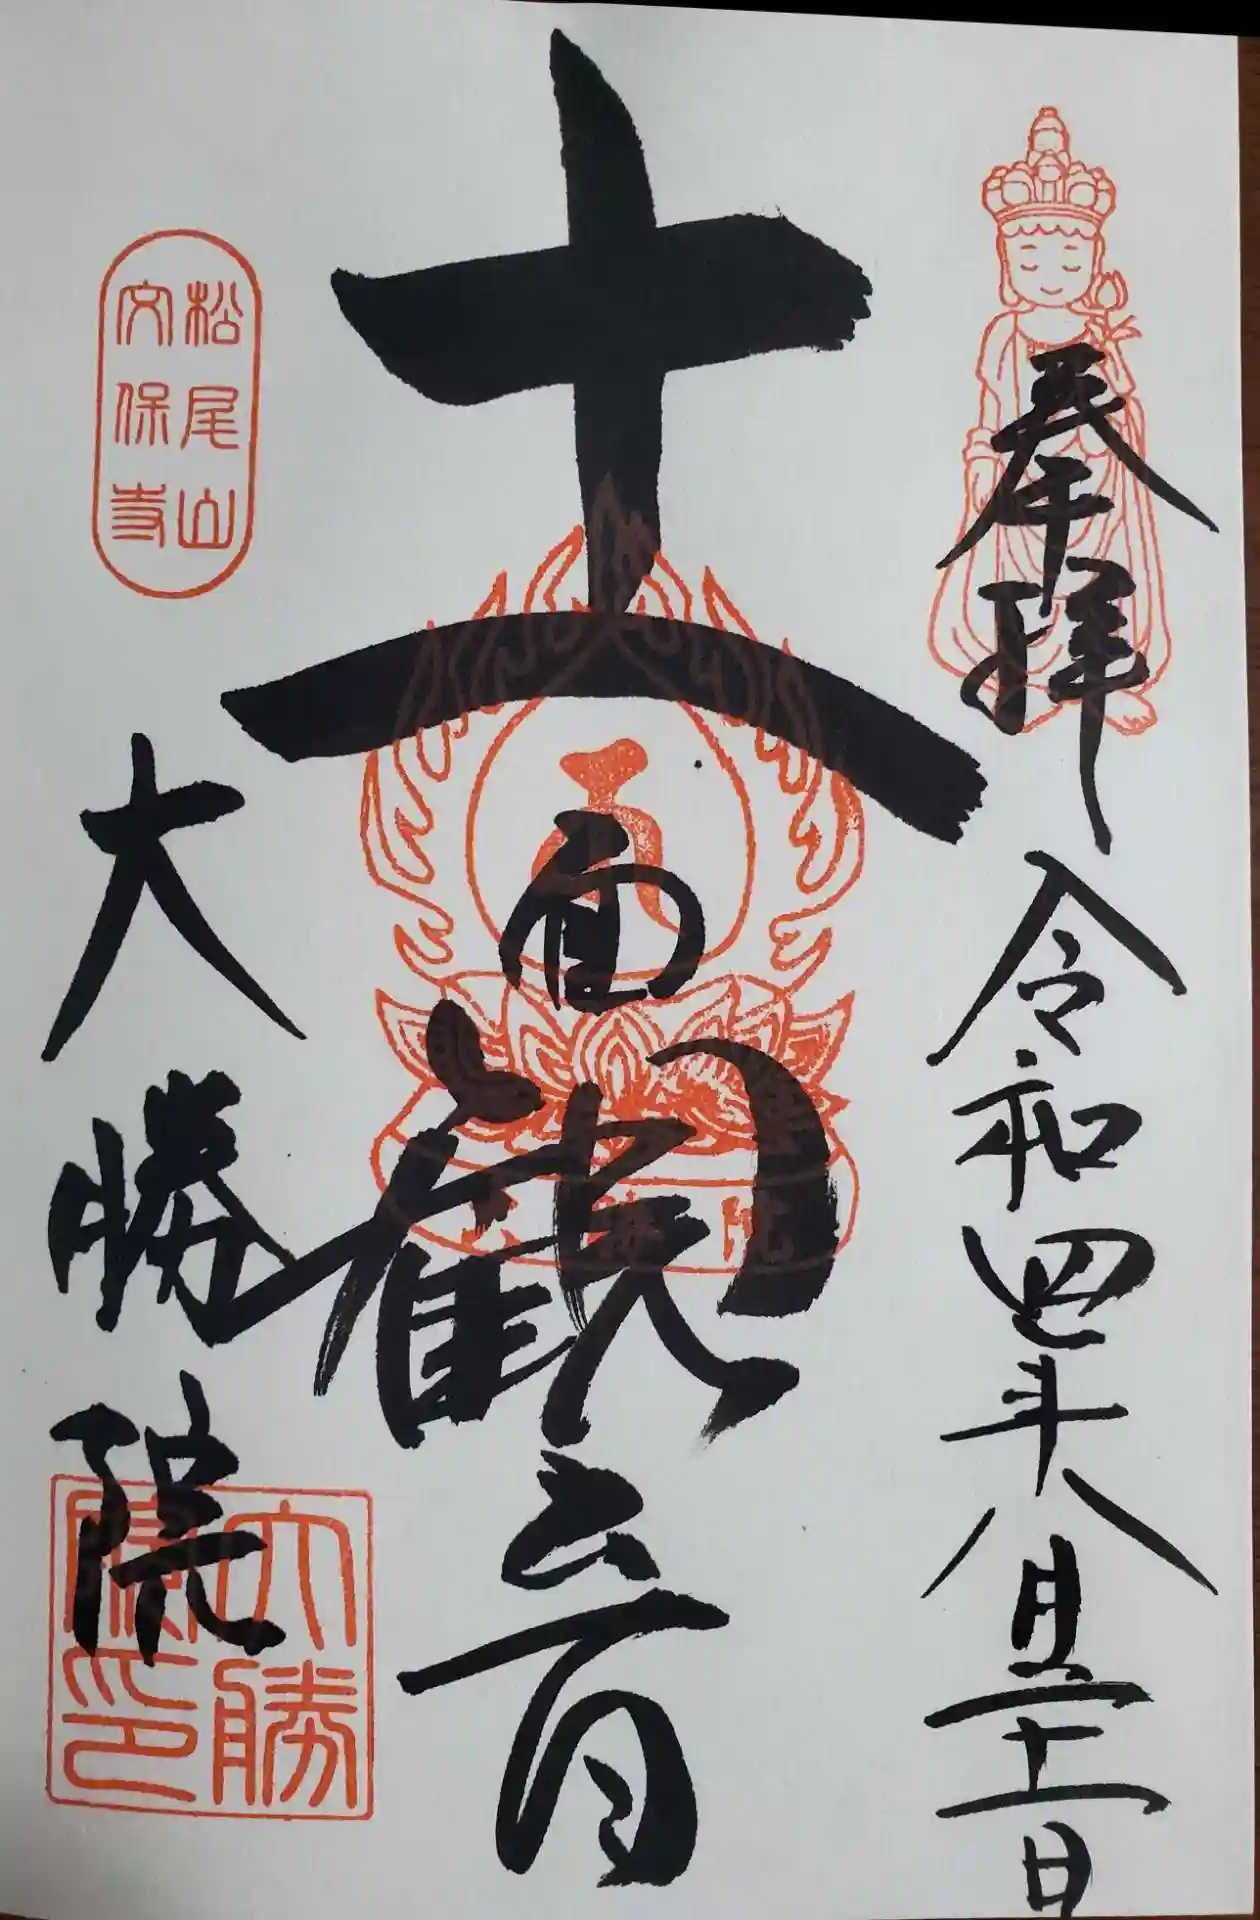 奉拝 令和四年八月二十一日
十一面観音
松尾山
文保寺
大勝院
大勝
院印